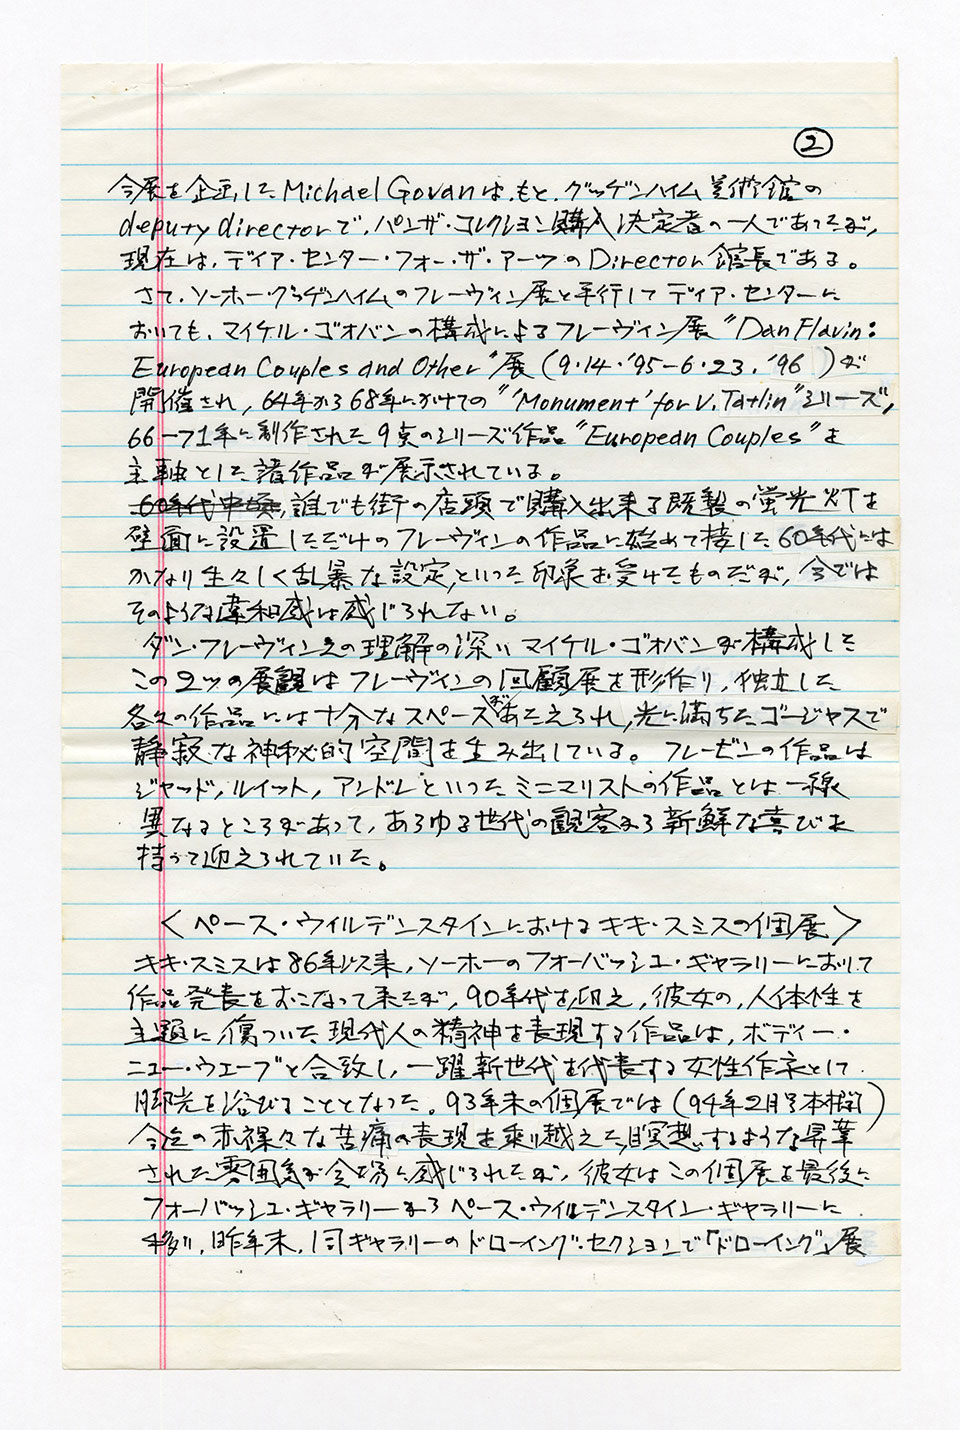 ②
今展を企画した Michael Govan は、もと、グッゲンハイム美術館の
deputy director で、パンザ・コレクション購入決定者の一人であったが、
現在は、ディア・センター・フォー・ザ・アーツの Director 館長である。
さて、ソーホー・グッゲンハイムのフレーヴィン展と平行して ディア・センターに
おいても、マイケル・ゴオバンの構成によるフレーヴィン展 "Dan Flavin:
European Couples and Other" 展 (9・14・'95－6・23、'96 ) が
開催され、64年から68年にかけての "'Monument' for V. Tatlin" シリーズ,
66－71年に制作された9点のシリーズ作品 "European Couples" を
主軸とした諸作品が展示されている。
60年代中頃, 誰でも街の店頭で購入出来る既製の蛍光灯を
壁面に設置しただけのフレーヴィンの作品に始めて接した60年代には
かなり生々しく乱暴な設定といった印象を受けたものだが、今では
そのような違和感は感じられない。
ダン・フレーヴィンえの理解の深いマイケル・ゴオバンが構成した
この2ツの展観はフレーヴィンの回顧展を形作り、独立した
各々の作品には十分なスペースがあたえられ, 光に満ちたゴージャスで
静寂な神秘的空間を生み出している。 フレービンの作品は
ジャッド, ルイット, アンドレといったミニマリストの作品とは一線
異なるところがあって、あらゆる世代の観客から新鮮な喜びを
持って迎えられていた。
〈ペース・ウィルデンスタインにおけるキキ・スミスの個展〉
キキ・スミスは86年以来、ソーホーのフォーバッシュ・ギャラリーにおいて
作品発表をおこなって来たが、90年代を迎え、彼女の、人体性を
主題に傷ついた現代人の精神を表現する作品は、ボディー・
ニュー・ウエーブと合致し、一躍新世代を代表する女性作家として
脚光を浴びることとなった。93年末の個展では (94年2月号本欄)
今迄の赤裸々な苦痛の表現を乗り越えた瞑想するような昇華
された雰囲気が会場に感じられたが、彼女はこの個展を最後に
フォーバッシュ・ギャラリーからペース・ウイルデンスタイン・ギャラリーに
移り、昨年末、同ギャラリーのドローイング・セクションで「ドローイング」展